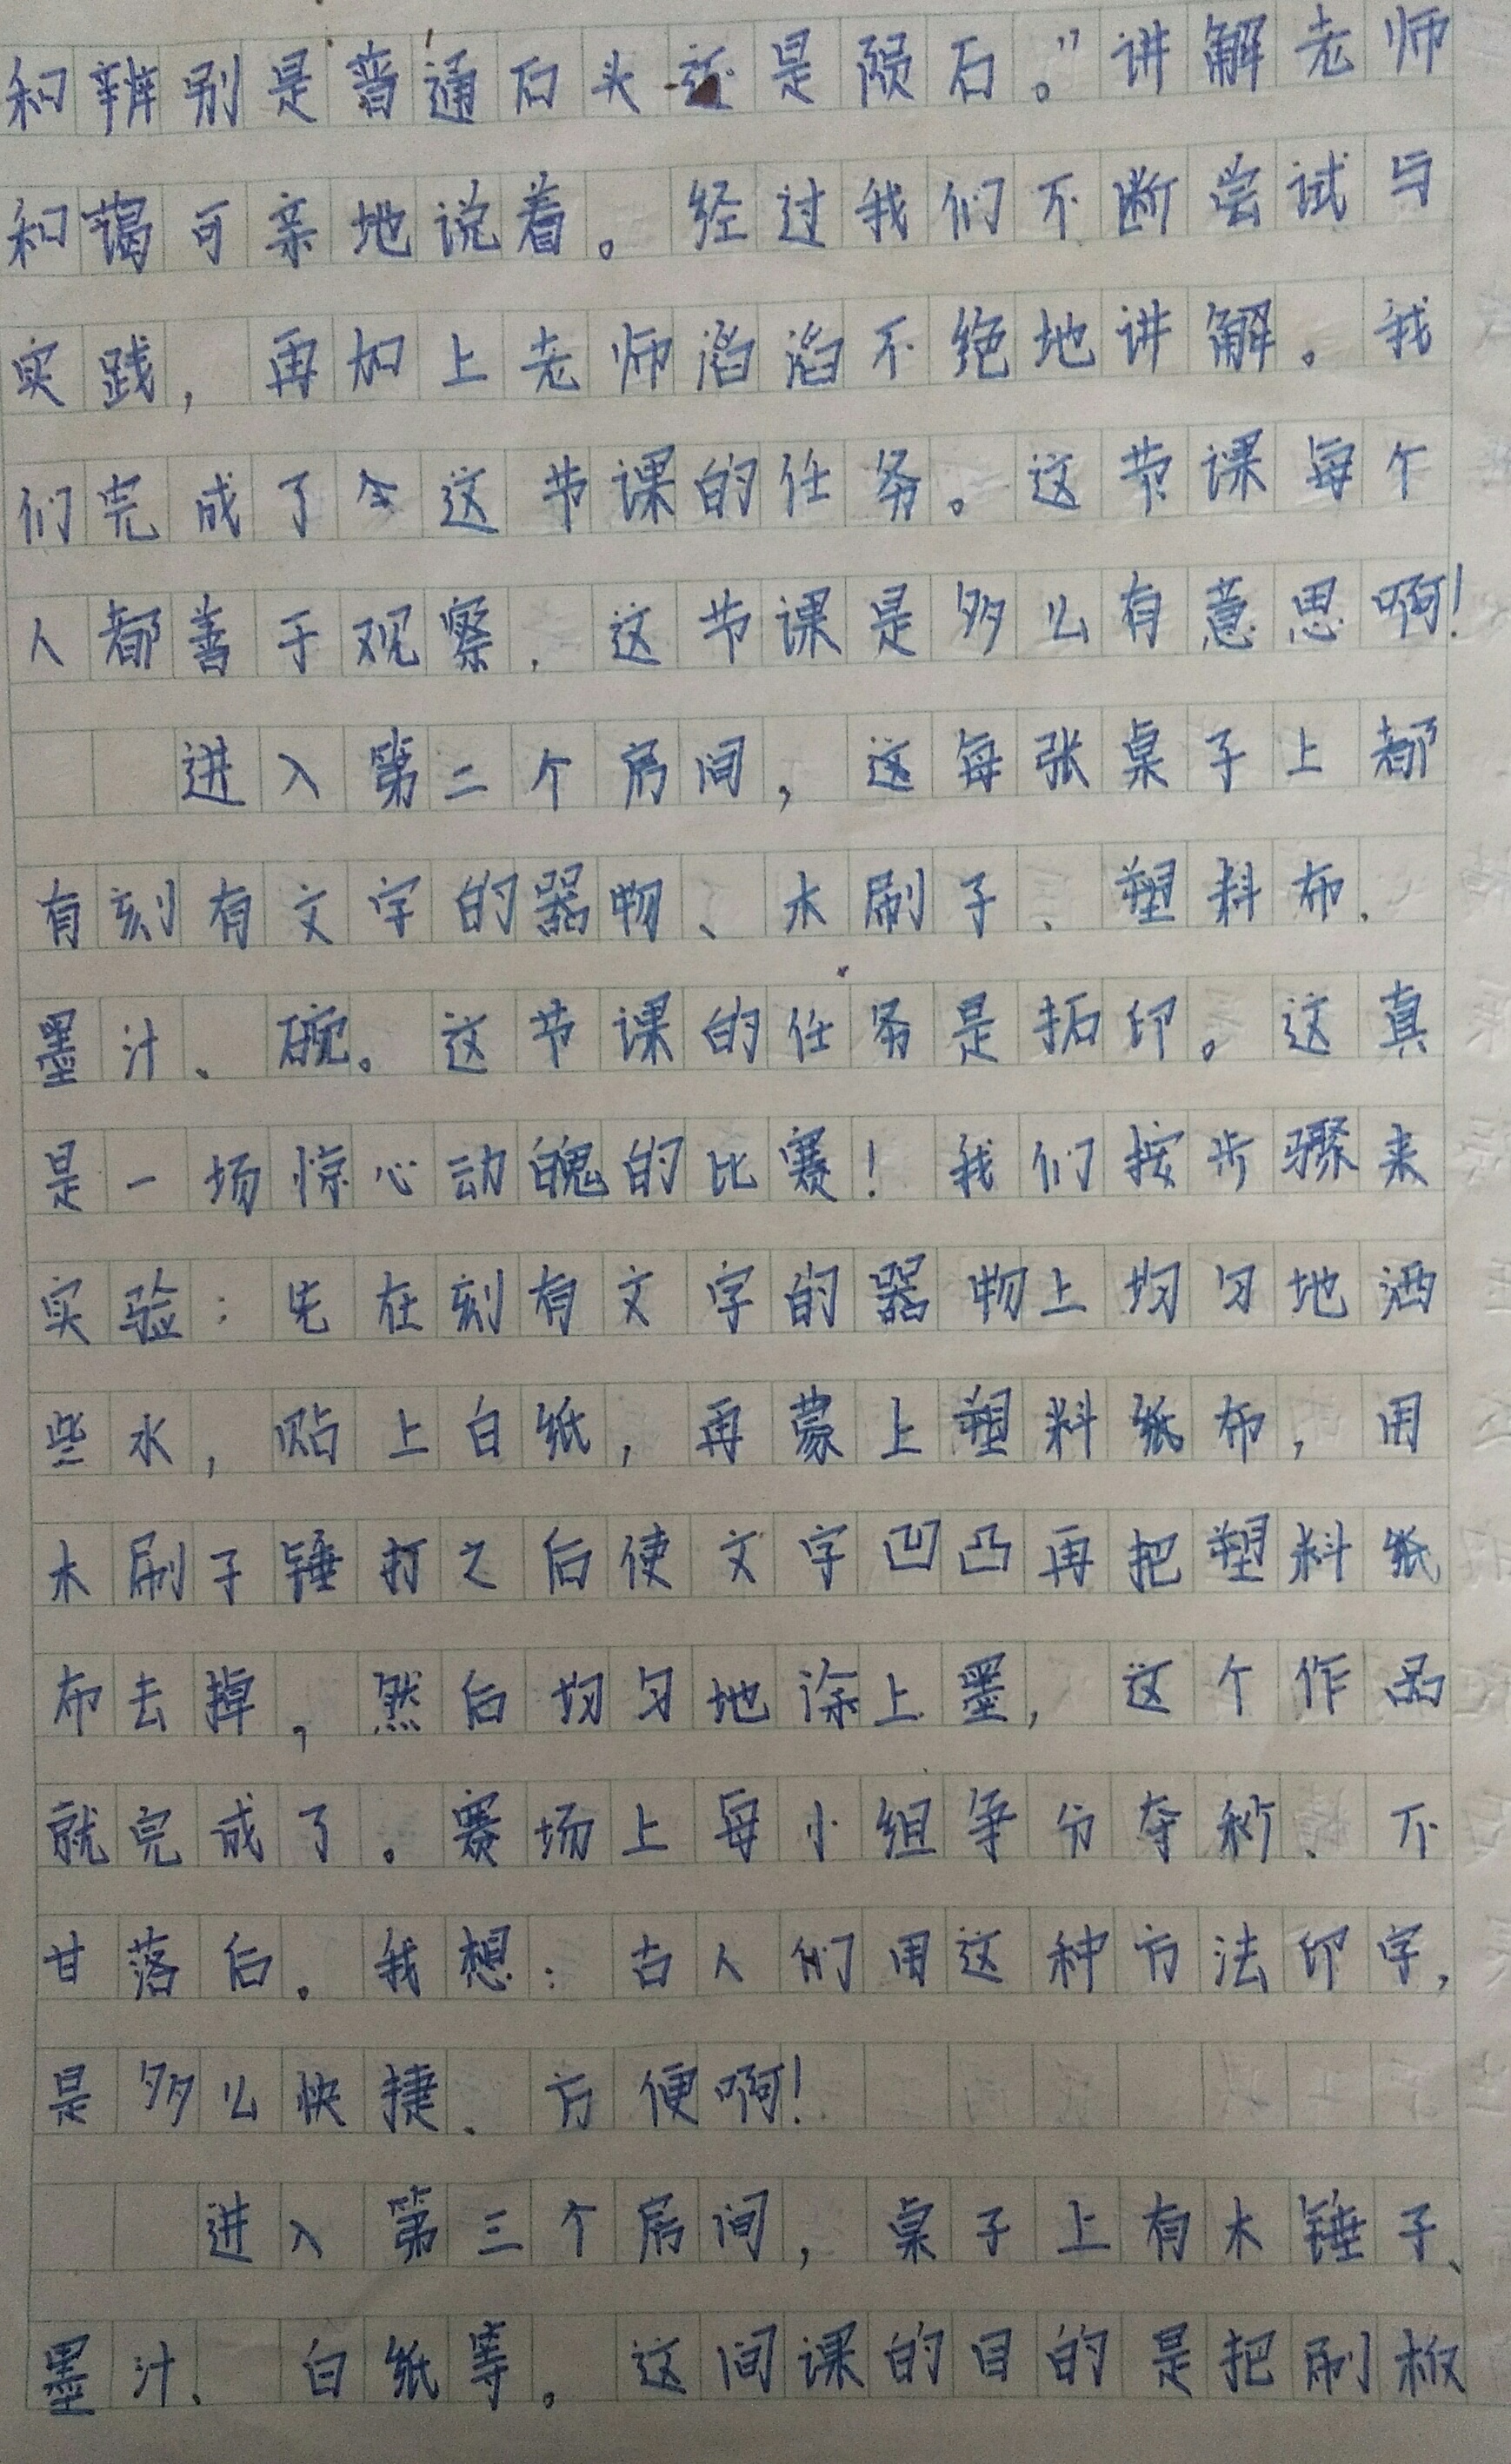 和辨别是普通石头还是陨石。”讲解老师
和蔼可亲地说着。经过我们不断尝试与
实践，再加上老师滔滔不绝地讲解。我
们完成了这节课的任务。这节课每个
人都善于观察，这节课是多么有意思啊！
进入第二个房间，这每张桌子上都
有刻有文字的器物、木刷子、塑料布、
墨汁、碗。这节课的任务是拓印。这真
是一场惊心动魄的比赛！我们按步骤来
实验：先在刻有文字的器物上均匀地洒
些水，贴上白纸，再蒙上塑料纸布，用
木刷子锤打之后使文字凹凸再把塑料纸
布去掉，然后均匀地涂上墨，这个作品
就完成了。赛场上每小组争分夺秒、不
甘落后。我想：古人们用这种方法印字，
是多么快捷、方便啊！
进入第三个房间，桌子上有木锤子、
墨汁、白纸等。这间课的目的是把刷板